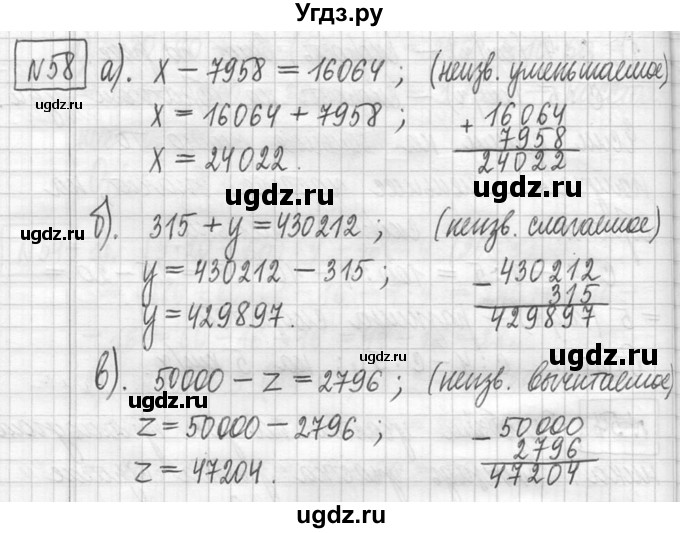 Угдз.ру
№58 а). x - 7958 = 16064 ; (неизв. уменьшаемое)
x = 16064 + 7958 ;
x = 24022.
+ 16064
7958
24022
ugdz.ru
ugdz.ru
ugdz.ru
ugdz.ru
б). 315 + y = 430212 ; (неизв. слагаемое)
y = 430212 - 315 ;
y = 429897.
- 430212
315
429897
ugdz.ru
ugdz.ru
в). 50000 - z = 2796 ; (неизв. вычитаемое)
z = 50000 - 2796 ;
z = 47204.
- 50000
2796
47204
ugdz.ru
ugdz.ru
ugdz.ru
ugdz.ru